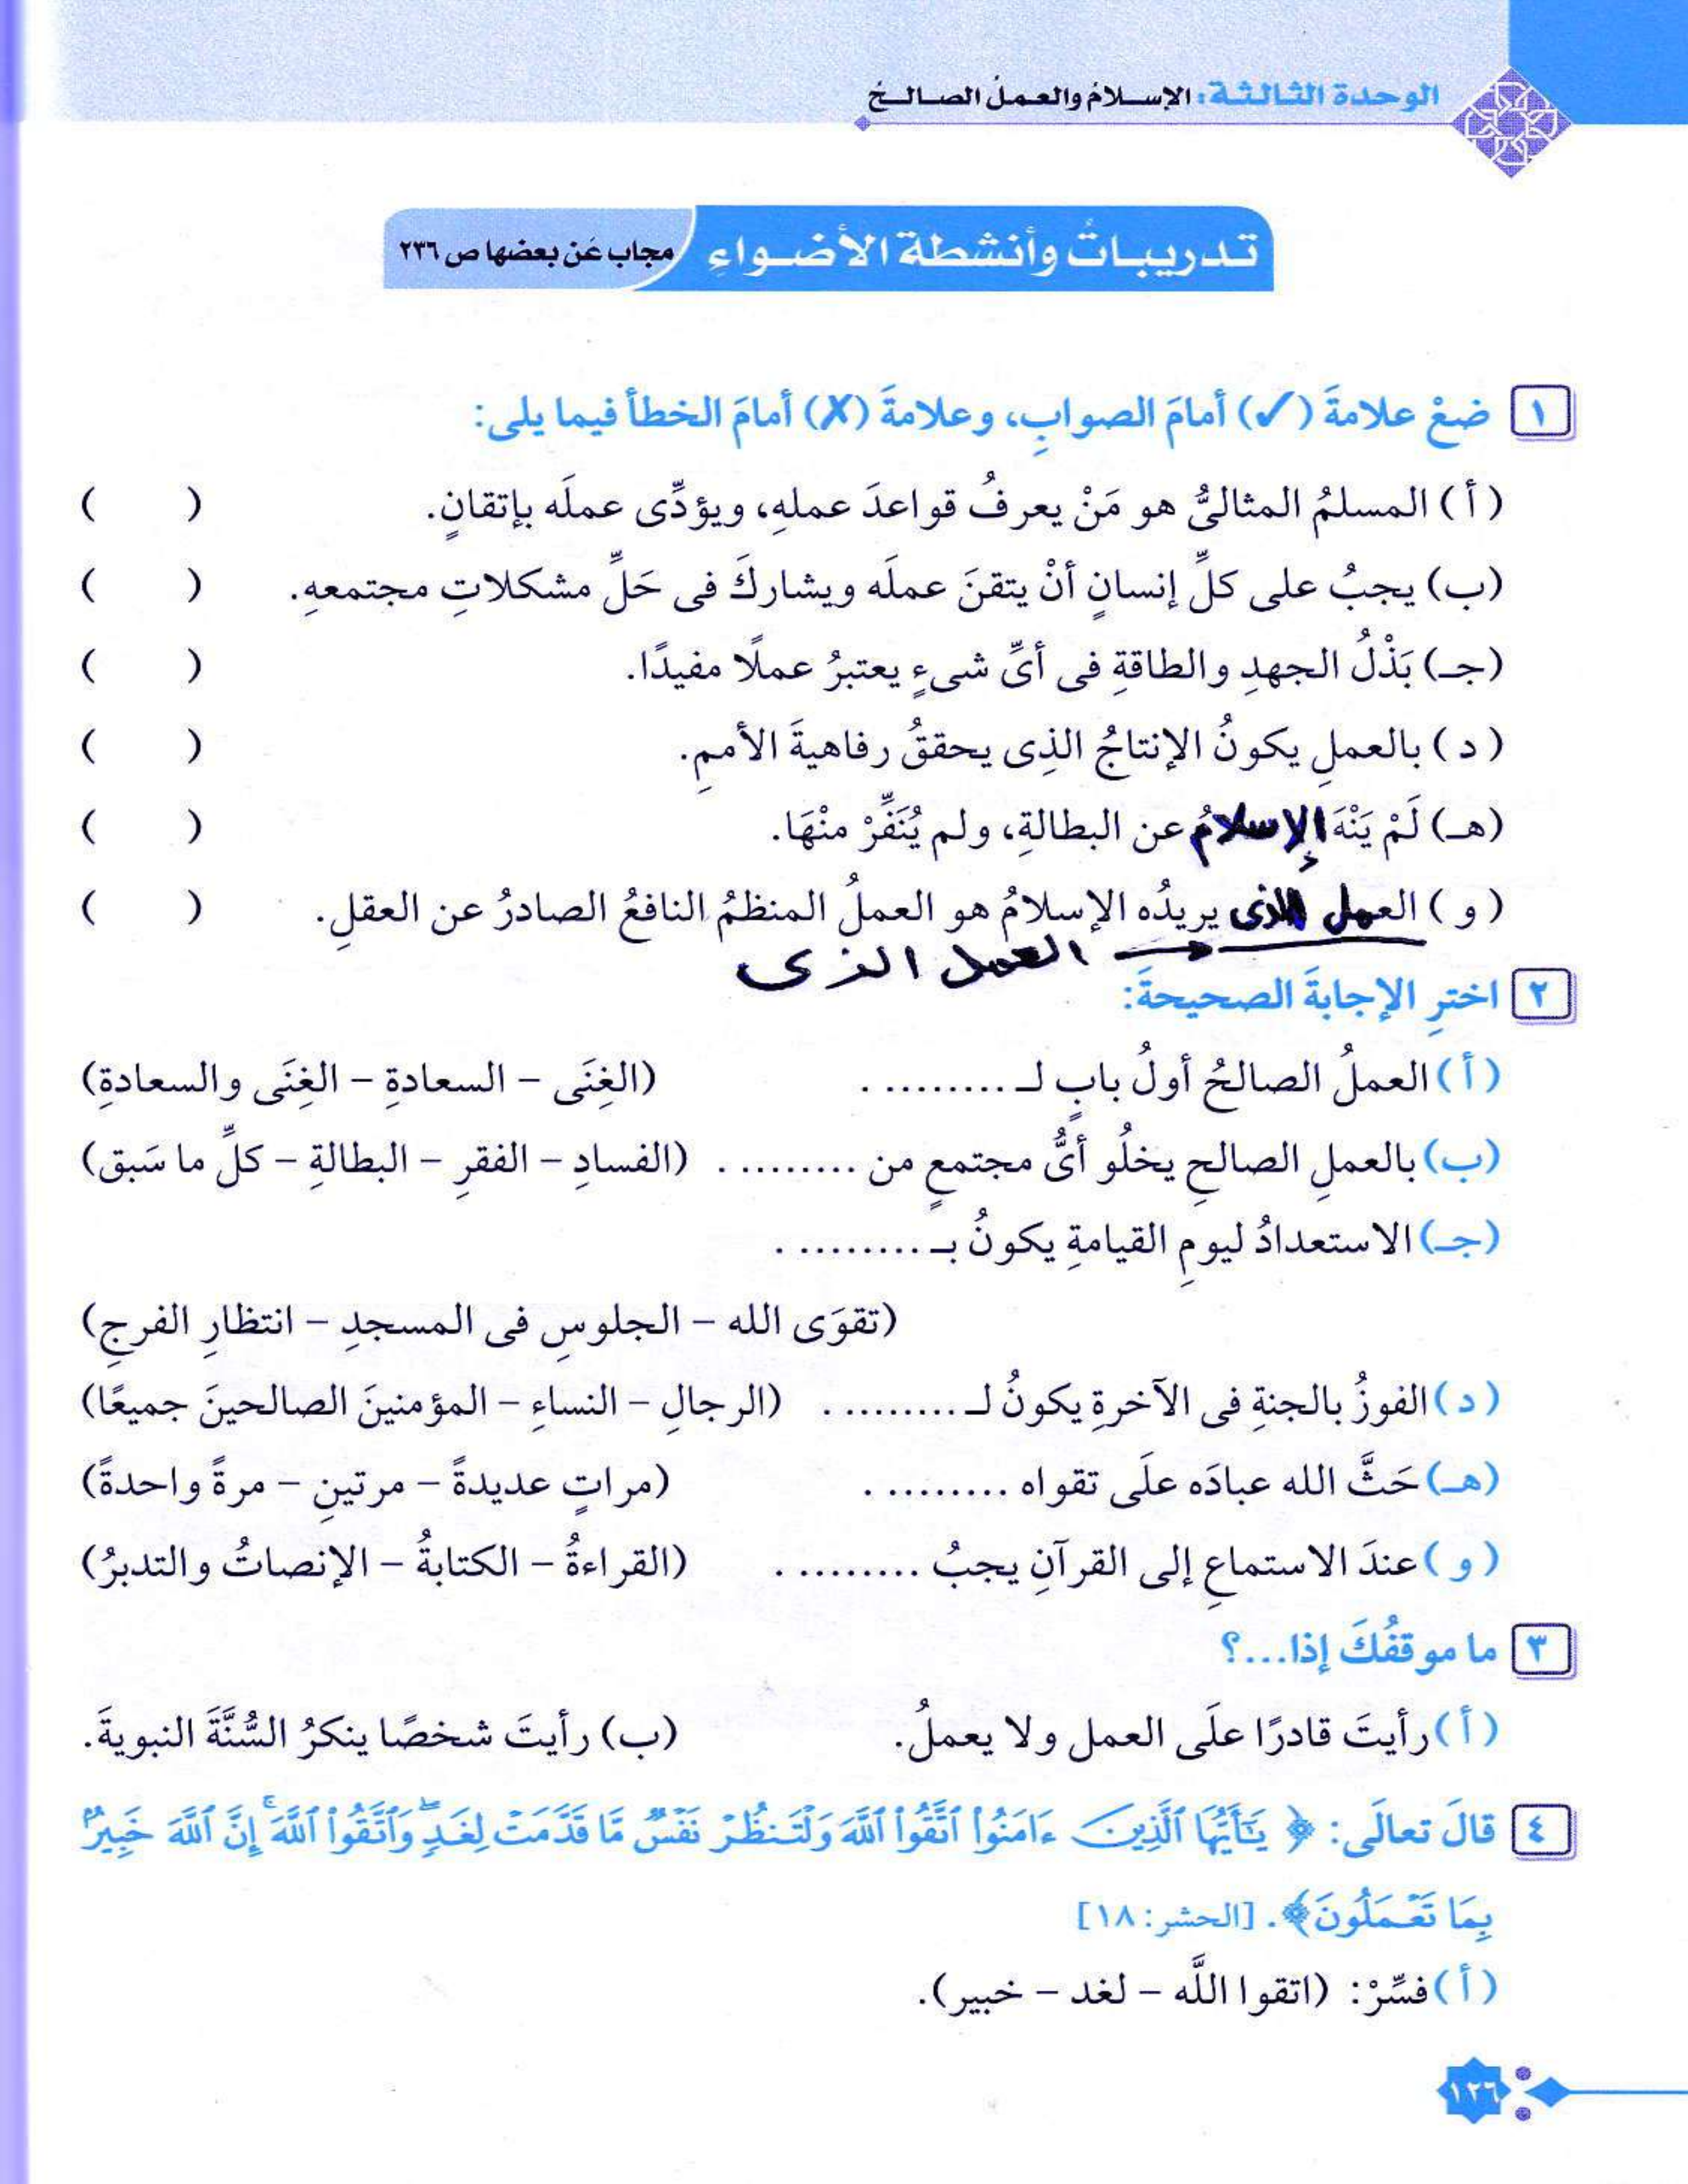 الوحدة الثالثة: الإسلامُ والعملُ الصالحُ
تدريباتُ وأنشطة الأضواءِ
مجاب عَن بعضها ص ٢٣٦
١ ضعْ علامةَ (✓) أمامَ الصوابِ، وعلامةَ (✗) أمامَ الخطأ فيما يلى:
( أ ) المسلمُ المثالىُّ هو مَنْ يعرفُ قواعدَ عملهِ، ويؤدِّى عملَه بإتقانٍ. ( )
(ب) يجبُ على كلِّ إنسانٍ أنْ يتقنَ عملَه ويشاركَ فى حَلِّ مشكلاتِ مجتمعهِ. ( )
(جـ) بَذْلُ الجهدِ والطاقةِ فى أىِّ شىءٍ يعتبرُ عملًا مفيدًا. ( )
( د ) بالعملِ يكونُ الإنتاجُ الذِى يحققُ رفاهيةَ الأممِ. ( )
(هـ) لَمْ يَنْهَ الإسلامُ عن البطالةِ، ولم يُنَفِّرْ منْهَا. ( )
( و ) العمل الذى يريدُه الإسلامُ هو العملُ المنظمُ النافعُ الصادرُ عن العقلِ. ( )
العمل الذى
٢ اخترِ الإجابةَ الصحيحةَ:
( أ ) العملُ الصالحُ أولُ بابٍ لـ .......... . (الغِنَى – السعادةِ – الغِنَى والسعادةِ)
(ب) بالعملِ الصالحِ يخلُو أىُّ مجتمعٍ من .......... . (الفسادِ – الفقرِ – البطالةِ – كلِّ ما سَبق)
(جـ) الاستعدادُ ليومِ القيامةِ يكونُ بـ .......... .
(تقوَى الله – الجلوسِ فى المسجدِ – انتظارِ الفرجِ)
( د ) الفوزُ بالجنةِ فى الآخرةِ يكونُ لـ .......... . (الرجالِ – النساءِ – المؤمنينَ الصالحينَ جميعًا)
(هـ) حَثَّ الله عبادَه علَى تقواه .......... . (مراتٍ عديدةً – مرتينِ – مرةً واحدةً)
( و ) عندَ الاستماعِ إلى القرآنِ يجبُ .......... . (القراءةُ – الكتابةُ – الإنصاتُ والتدبرُ)
٣ ما موقفُكَ إذا...؟
( أ ) رأيتَ قادرًا علَى العمل ولا يعملُ. (ب) رأيتَ شخصًا ينكرُ السُّنَّةَ النبويةَ.
٤ قالَ تعالَى: ﴿ يَٰٓأَيُّهَا ٱلَّذِينَ ءَامَنُوا۟ ٱتَّقُوا۟ ٱللَّهَ وَلْتَنظُرْ نَفْسٌ مَّا قَدَّمَتْ لِغَدٍۖ وَٱتَّقُوا۟ ٱللَّهَۚ إِنَّ ٱللَّهَ خَبِيرٌۢ
بِمَا تَعْمَلُونَ﴾. [الحشر: ١٨]
( أ ) فسِّرْ: (اتقوا اللَّه – لغد – خبير).
١٢٦